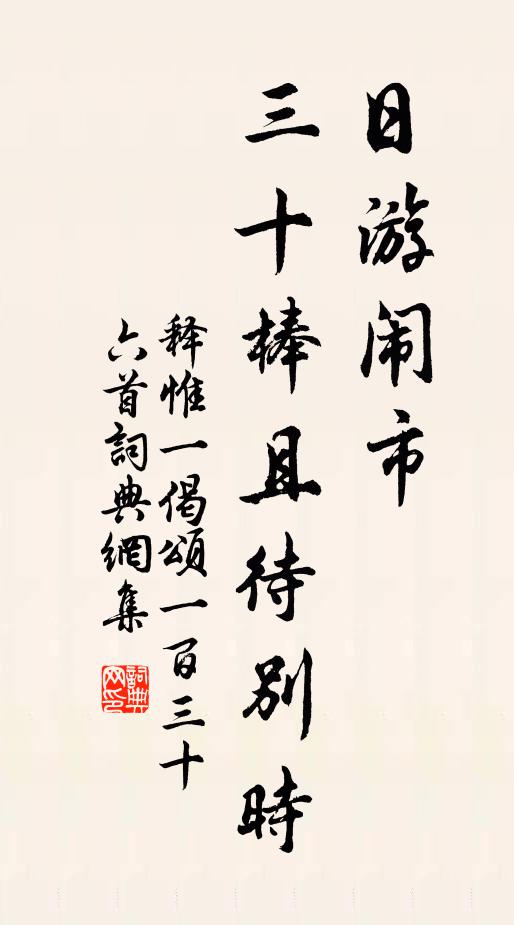 日游闹市
三十棒且待別時
释惟一偈頌一百三十
六首詞典網集
詞典网印